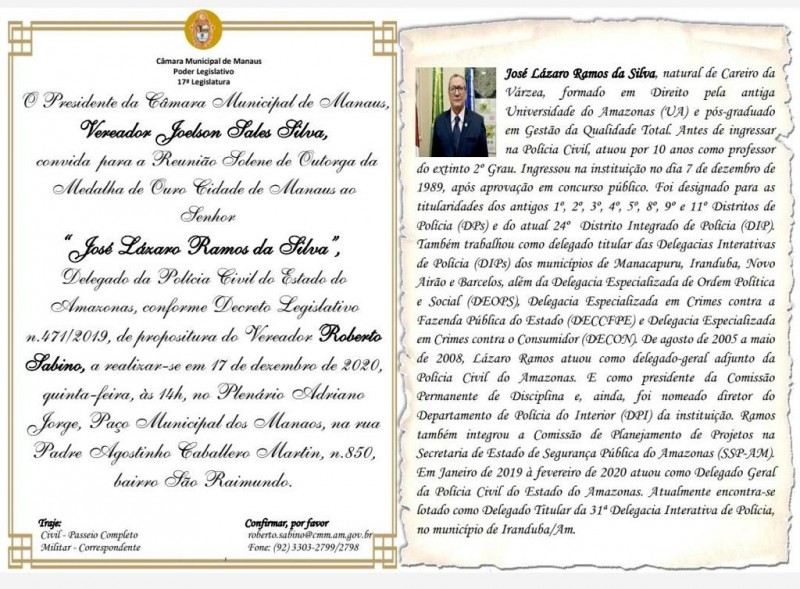 Câmara Municipal de Manaus
Poder Legislativo
17ª Legislatura
O Presidente da Câmara Municipal de Manaus,
Vereador Joelson Sales Silva,
convida para a Reunião Solene de Outorga da
Medalha de Ouro Cidade de Manaus ao
Senhor
“ José Lázaro Ramos da Silva”,
Delegado da Polícia Civil do Estado do
Amazonas, conforme Decreto Legislativo
n.471/2019, de propositura do Vereador Roberto
Sabino, a realizar-se em 17 de dezembro de 2020,
quinta-feira, às 14h, no Plenário Adriano
Jorge, Paço Municipal dos Manaos, na rua
Padre Agostinho Caballero Martin, n.850,
bairro São Raimundo.
Traje:
Civil - Passeio Completo
Militar - Correspondente
Confirmar, por favor
roberto.sabino@cmm.am.gov.br
Fone: (92) 3303-2799/2798
José Lázaro Ramos da Silva, natural de Careiro da
Várzea, formado em Direito pela antiga
Universidade do Amazonas (UA) e pós-graduado
em Gestão da Qualidade Total. Antes de ingressar
na Polícia Civil, atuou por 10 anos como professor
do extinto 2º Grau. Ingressou na instituição no dia 7 de dezembro de
1989, após aprovação em concurso público. Foi designado para as
titularidades dos antigos 1º, 2º, 3º, 4º, 5º, 8º, 9º e 11º Distritos de
Polícia (DPs) e do atual 24º Distrito Integrado de Polícia (DIP).
Também trabalhou como delegado titular das Delegacias Interativas
de Polícia (DIPs) dos municípios de Manacapuru, Iranduba, Novo
Airão e Barcelos, além da Delegacia Especializada de Ordem Política
e Social (DEOPS), Delegacia Especializada em Crimes contra a
Fazenda Pública do Estado (DECCFPE) e Delegacia Especializada
em Crimes contra o Consumidor (DECON). De agosto de 2005 a maio
de 2008, Lázaro Ramos atuou como delegado-geral adjunto da
Polícia Civil do Amazonas. E como presidente da Comissão
Permanente de Disciplina e, ainda, foi nomeado diretor do
Departamento de Polícia do Interior (DPI) da instituição. Ramos
também integrou a Comissão de Planejamento de Projetos na
Secretaria de Estado de Segurança Pública do Amazonas (SSP-AM).
Em Janeiro de 2019 à fevereiro de 2020 atuou como Delegado Geral
da Polícia Civil do Estado do Amazonas. Atualmente encontra-se
lotado como Delegado Titular da 31ª Delegacia Interativa de Polícia,
no município de Iranduba/Am.